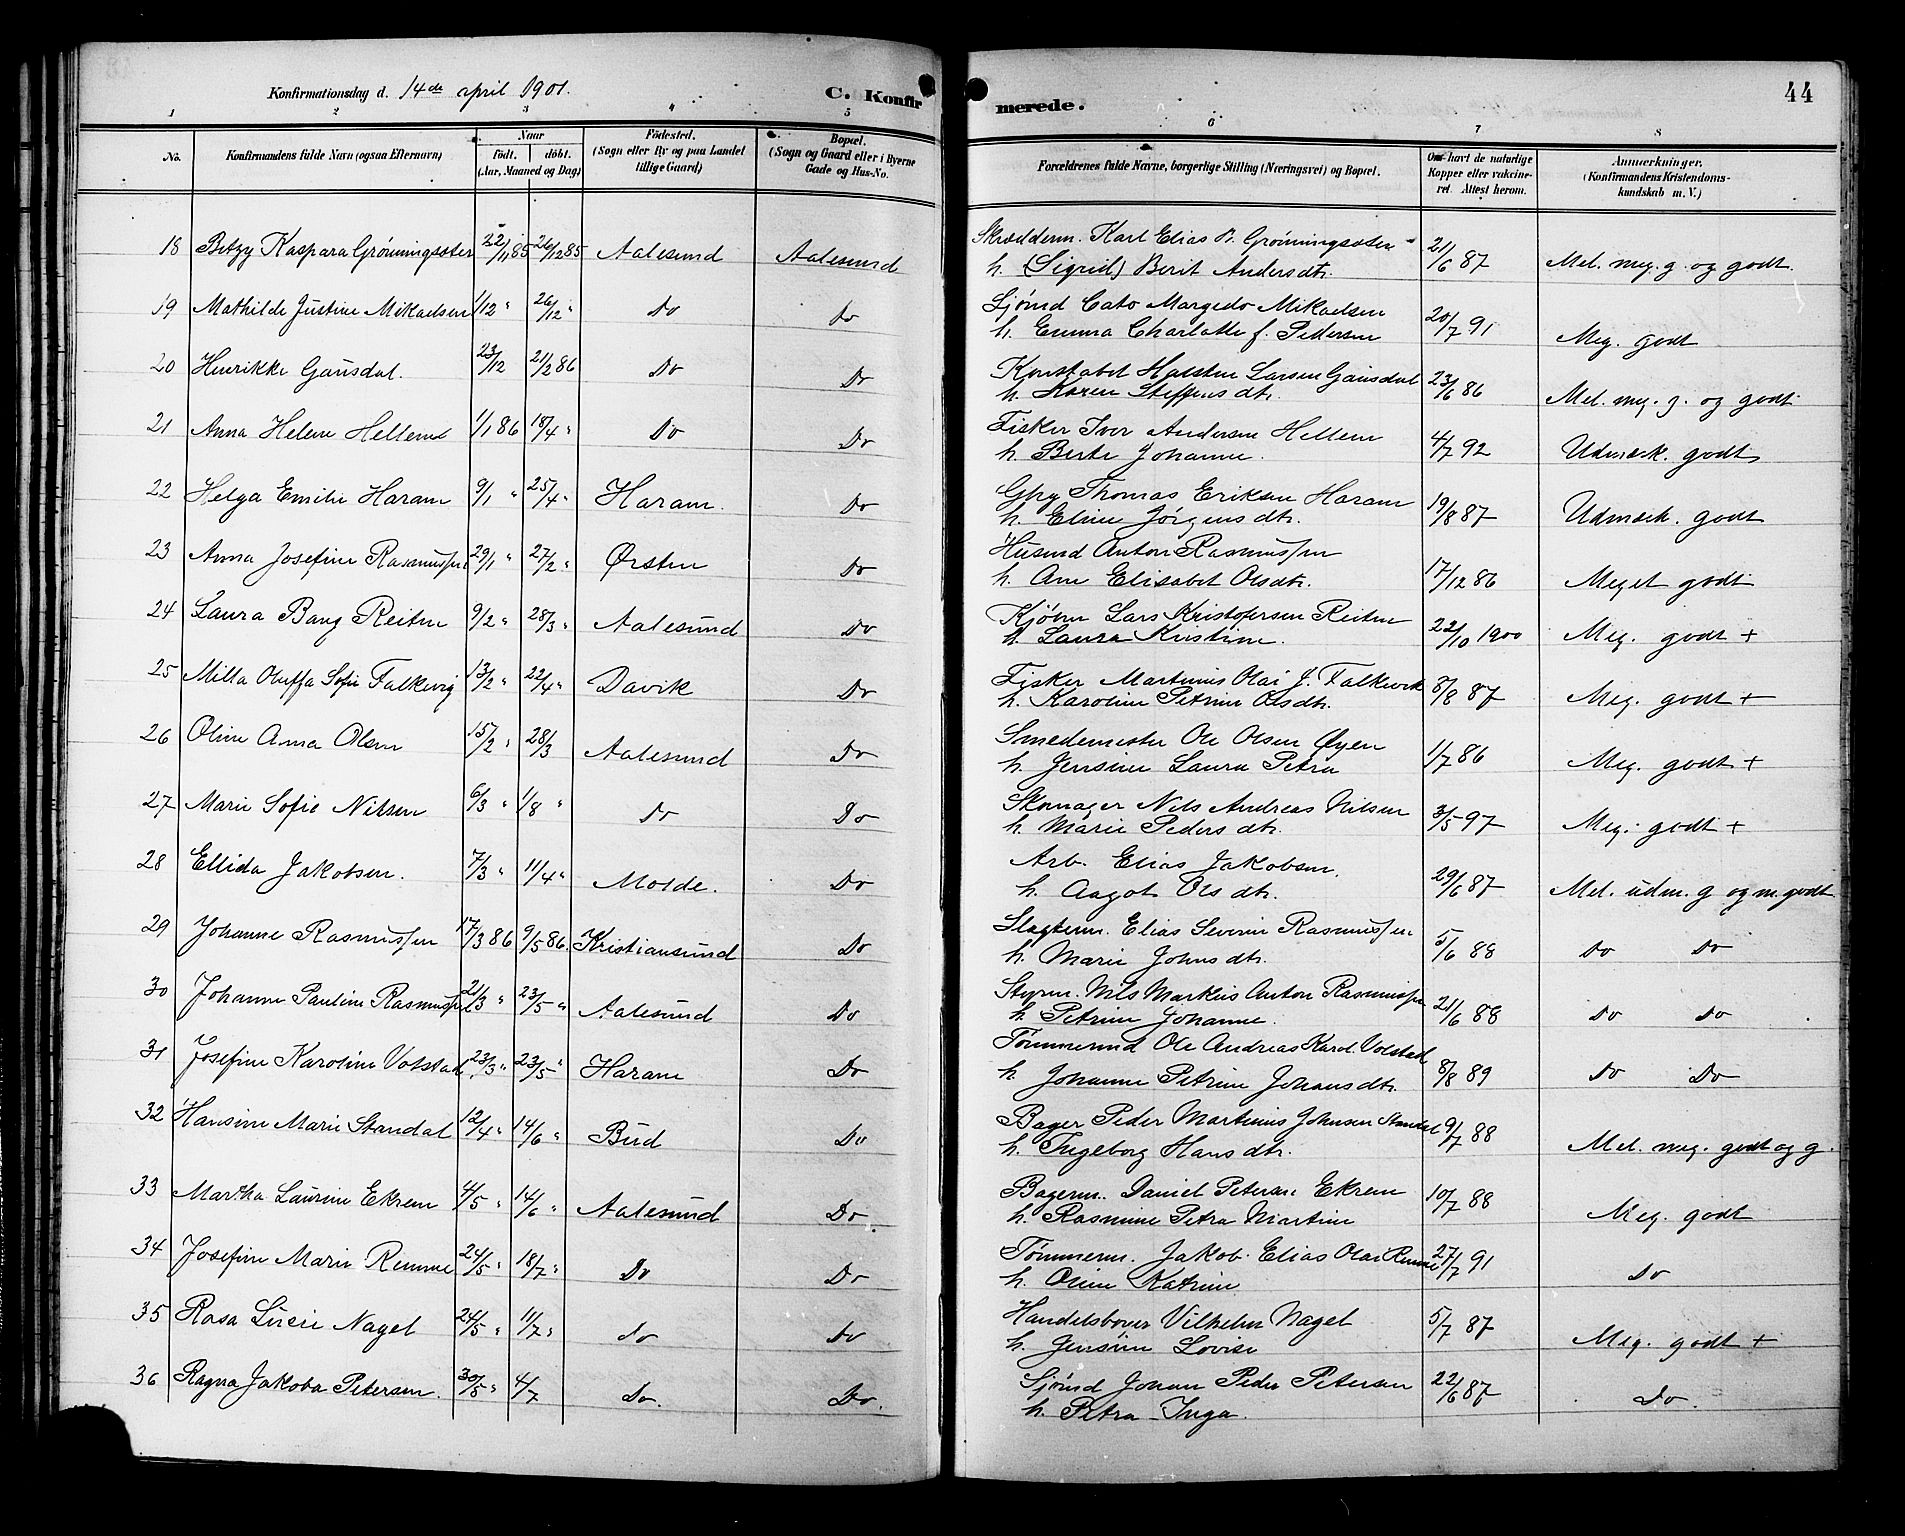 Konfirmationsdag d. 14de april 1901. C. Konfirmerede. 44
1 2 3 4 5 6 7 8
No. Konfirmandens fulde Navn (ogsaa Efternavn) Naar født. døbt. (Aar, Maaned og Dag) Fødested. (Sogn eller By og paa Landet tillige Gaard) Bopæl. (Sogn og Gaard eller i Byerne Gade og Hus-No. Forældrenes fulde Navne, borgerlige Stilling (Næringsvei) og Bopæl. Om havt de naturlige Kopper eller vakcineret. Attest herom. Anmærkninger. (Konfirmandens Kristendomskundskab m. V.)
18 Betzy Kaspara Grönningsæter 22/11 85 26/12 85 Aalesund Aalesund Skrædderm. Karl Elias Grönningsæter 21/6 87 Mel. meg. g. og godt.
h. (Sigrid) Berit Andersdtr.
19 Mathilde Justine Mikaelsen 1/12 " 26/12 " Do Do Sjömd Cato Margido Mikaelsen 20/7 91 Meg. godt
h. Emma Charlotte f. Pedersen
20 Henrikke Gausdal. 23/12 21/2 86 Do Do Konstabel Halsten Larsen Gausdal 23/6 86 Mel. meg. g. og godt.
h. Karen Steffensdtr.
21 Anna Helene Hellem 1/1 86 18/4 " Do Do Fisker Iver Andersen Hellem 4/7 92 Udmærk. godt
h. Berte Johanne.
22 Helga Emilie Haram 9/1 " 25/4 " Haram. Do Thomas Eriksen Haram 19/8 87 Udmærk. godt
h. Eline Jörgensdtr.
23 Anna Josefine Rasmussen 29/1 " 27/2 " Ørsten Do Husmd Anton Rasmussen 17/12 86 Meget godt
h. Ane Elisabet Olsdtr.
24 Laura Bang Reiten 9/2 " 28/3 " Aalesund Do Kjöbm Lars Kristofersen Reiten 22/10 1900 Meg. godt +
h. Laura Kristine.
25 Milla Oluffa Sofie Falkevig 13/2 " 22/4 " Davik Do Fisker Martinus Olai J. Falkevik 8/8 87 Meg. godt +
h. Karoline Petrine Olsdtr.
26 Oline Anna Olsen 15/2 " 28/3 Aalesund Do Smedemester Ole Olsen Øyen 1/7 86 Meg. godt +
h. Jensine Laura Petra
27 Marie Sofie Nilsen 6/3 " 1/8 " Do Do Skomager Nils Andreas Nilsen 3/5 97 Meg. godt +
h. Marie Pedersdtr.
28 Ellida Jakobsen. 7/3 " 11/4 " Molde. Do Arb. Elias Jakobsen. 29/6 87 Mel. udm. g og m. godt.
h. Aagot Olsdtr.
29 Johanne Rasmussen 17/3 86 9/5 86. Kristiansund Do Slagterm. Elias Severin Rasmussen 5/6 88 Do Do
h. Marie Johnsdtr.
30 Johanne Pauline Rasmussen 21/3 " 23/5 " Aalesund Do Styrm. Nils Markus Anton Rasmussen 21/6 88 Do Do
h. Petrine Johanne.
31 Josefine Karoline Volstad 23/3 " 23/5 " Haram Do Tömmermd Ole Andreas Karol. Volstad 8/8 89 Do Do
h. Johanne Petrine Johansdtr.
32 Hansine Marie Standal 12/4 " 14/6 " Bud Do Bager Peder Martinus Johnsen Standal 9/7 88 Mel. meg. godt og g.
h. Ingeborg Hansdtr.
33 Martha Laurine Ekrem 4/5 " 14/6 " Aalesund Do Bagerm. Daniel Petersen Ekrem 10/7 88 Meg. godt
h. Rasmine Petra Martine
34 Josefine Marie Remme 24/5 " 18/7 " Do Do Tömmerm. Jakob Elias Olai Remme 27/7 91 Do
h. Oline Katrine
35 Rosa Lucie Nagel 24/5 " 11/7 " Do Do Handelsborer Vilhelm Nagel 5/7 87 Meg. godt +
h. Jensine Lovise
36 Ragna Jakoba Petersen. 30/5 " 4/7 Do. Do. Sjömd Johan Peder Petersen 22/6 87 Do.
h. Petra Inga.